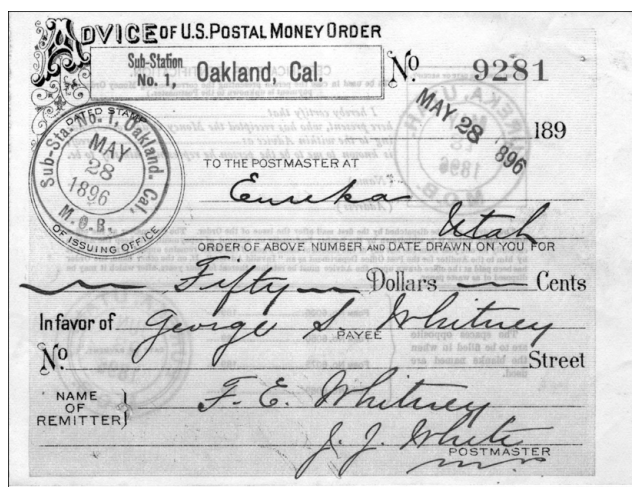 ADVICE OF U.S. POSTAL MONEY ORDER
Sub-Station No. 1, Oakland, Cal.
No. 9281
MAY 28 1896
189
DATED STAMP
Sub-Sta. No. 1, Oakland- Cal.
MAY
28
1896
M.O.B.
OF ISSUING OFFICE
TO THE POSTMASTER AT
Eureka
Utah
ORDER OF ABOVE NUMBER AND DATE DRAWN ON YOU FOR
Fifty Dollars Cents
In favor of George S. Whitney
PAYEE
No. Street
NAME OF REMITTER F. E. Whitney
J. J. White
POSTMASTER